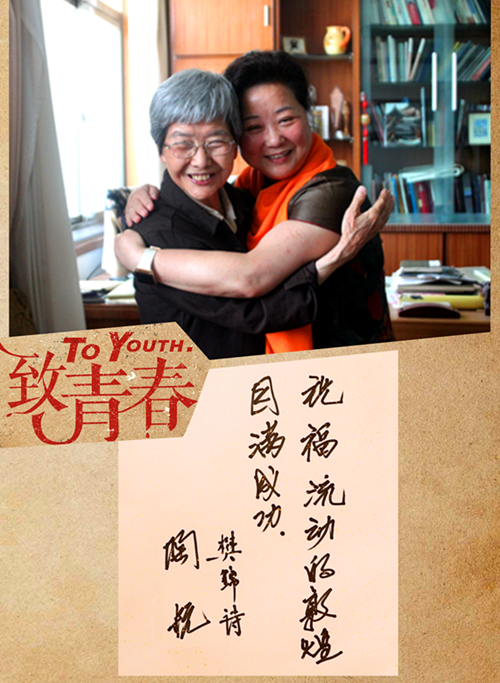 TO YOUTH.
致青春
祝福流动的敦煌
圆满成功.
樊锦诗
陶